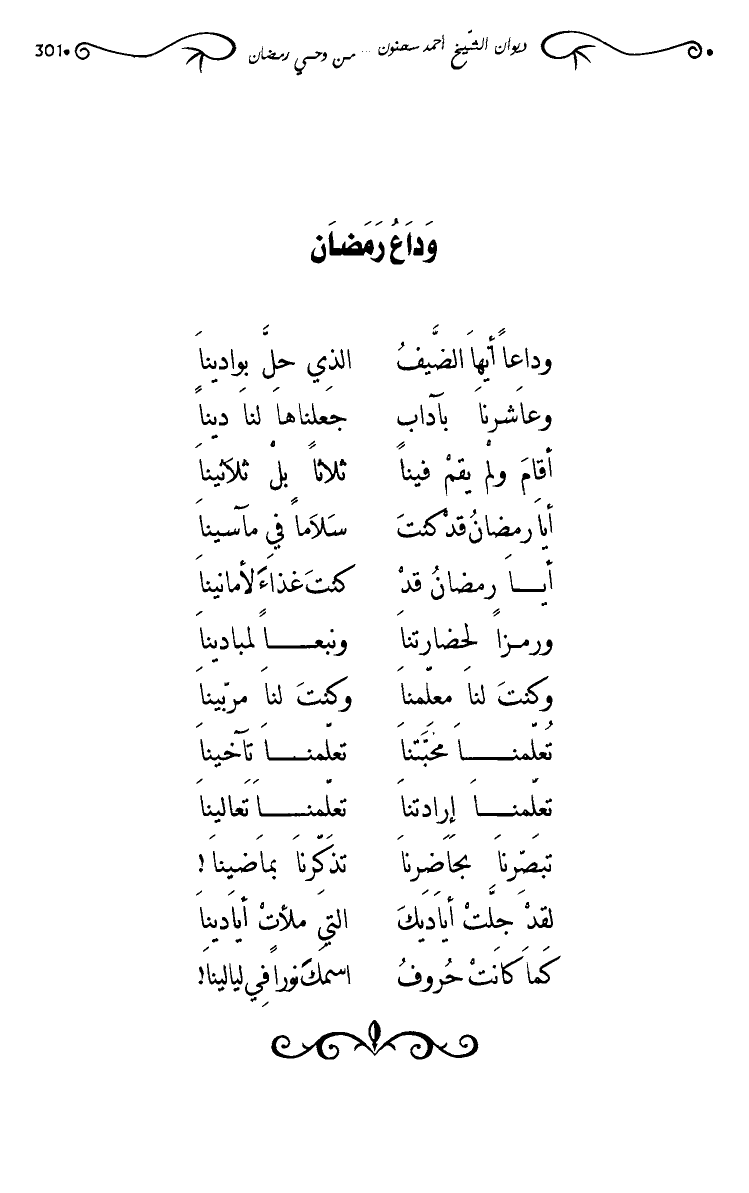 ديوان الشّيخ أحمد سحنون ... من وحي رمضان 301
وَدَاعُ رَمَضَان
وداعاً أيها الضَّيفُ الذي حلَّ بواديناَ
وعاشرناَ بآداب جعلناهاَ لناَ ديناً
أقامَ ولمْ يقمْ فيناً ثلاثاً بلْ ثلاَثيناَ
أياَ رمضانُ قدْ كنتَ سَلاَماً في مآسيناَ
أيــاَ رمضانُ قدْ كنتَ غذاءً لأمانيناَ
ورمـزاً لحضارتناَ ونبعــــاً لمباديناَ
وكنتَ لناَ معلّمناَ وكنتَ لناَ مربّيناَ
تُعلّمنــــاَ محَبَّتناَ تعلّمنــــاَ تآخيناَ
تعلّمنــــاَ إرادتناَ تعلّمنــــاَ تَعاليناَ
تبصّرناَ بحاَضرناَ تذكّرناَ بماَضيناَ !
لقدْ جلَّتْ أياَديكَ التيِ ملأتْ أياَديناَ
كماَ كانَتْ حُروفُ اسمكَ نوراً فيِ لياليناَ!